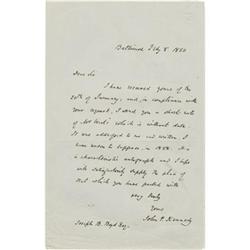 Baltimore Feby 8. 1850
Dear Sir
I have received yours of the
20th of January, and, in compliance with
your request, I send you a short note
of Mr Wirt's which is without date.
It was addressed to me and written, I
have reason to suppose, in
is a characteristic autograph and I hope
will satisfactorily supply the place of
that which you have parted with
Very truly
Yours
John P. Kennedy
Joseph B. Boyd Esq.